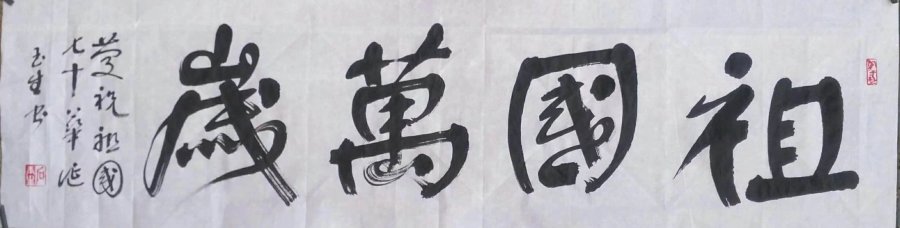 祖國萬歲
慶祝祖國
七十華诞
玉生书